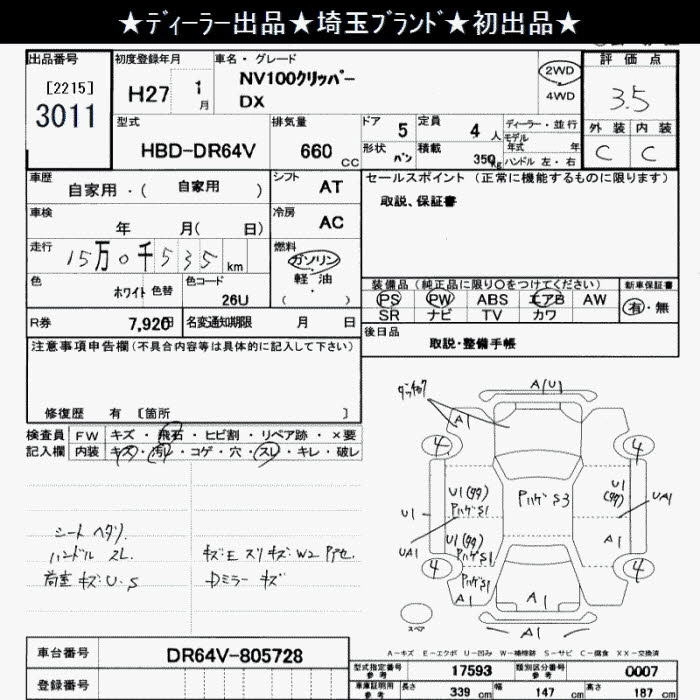 ★ディーラー出品★埼玉ブランド★初出品★
出品番号
[2215]
3011
初度登録年月
H27 1月
車名・グレード
NV100クリッパー
DX
2WD
4WD
評価点
3.5
外装 内装
C C
型式
HBD-DR64V
排気量
660 CC
ドア 5
定員 4 人
形状 バン
積載 350kg
ディーラー・並行
モデル年式 年
ハンドル 左・右
車歴
自家用・( 自家用 )
シフト AT
セールスポイント (正常に機能するものに限ります)
取説、保証書
車検
年 月( 日)
冷房 AC
走行
15万0千535 km
燃料
ガソリン
軽油
( ・ )
色
ホワイト 色替
色コード
26U
装備品 (純正品に限り○をつけてください) 新車保証書
PS PW ABS エアB AW
SR ナビ TV カワ
有・無
R券 7,920円
名変通知期限 月 日
後日品
取説・整備手帳
注意事項申告欄(不具合内容等は具体的に記入して下さい)
修復歴 有 [箇所 ]
検査員
記入欄
FW キズ・飛石・ヒビ割・リペア跡・×要
内装 キズ・汚レ・コゲ・穴・スレ・キレ・破レ
シートヘタリ
ハンドルスレ
荷室キズU.S
Dミラーキズ
A(U)
A1
4 4
U1
U1
Pハゲ S3
U1
UA1
UA1
Pハゲ S1
A1
Pハゲ S1
Pハゲ S1
4 4
A1
A1
スペア
A-キズ E-エクボ U-凹み W-補修跡 S-サビ C-腐食 XX-交換済
車台番号
DR64V-805728
登録番号
型式指定番号 参考 17593
類別区分番号 参考 0007
車庫証明用 参考
長さ 339 cm
幅 147 cm
高さ 187 cm